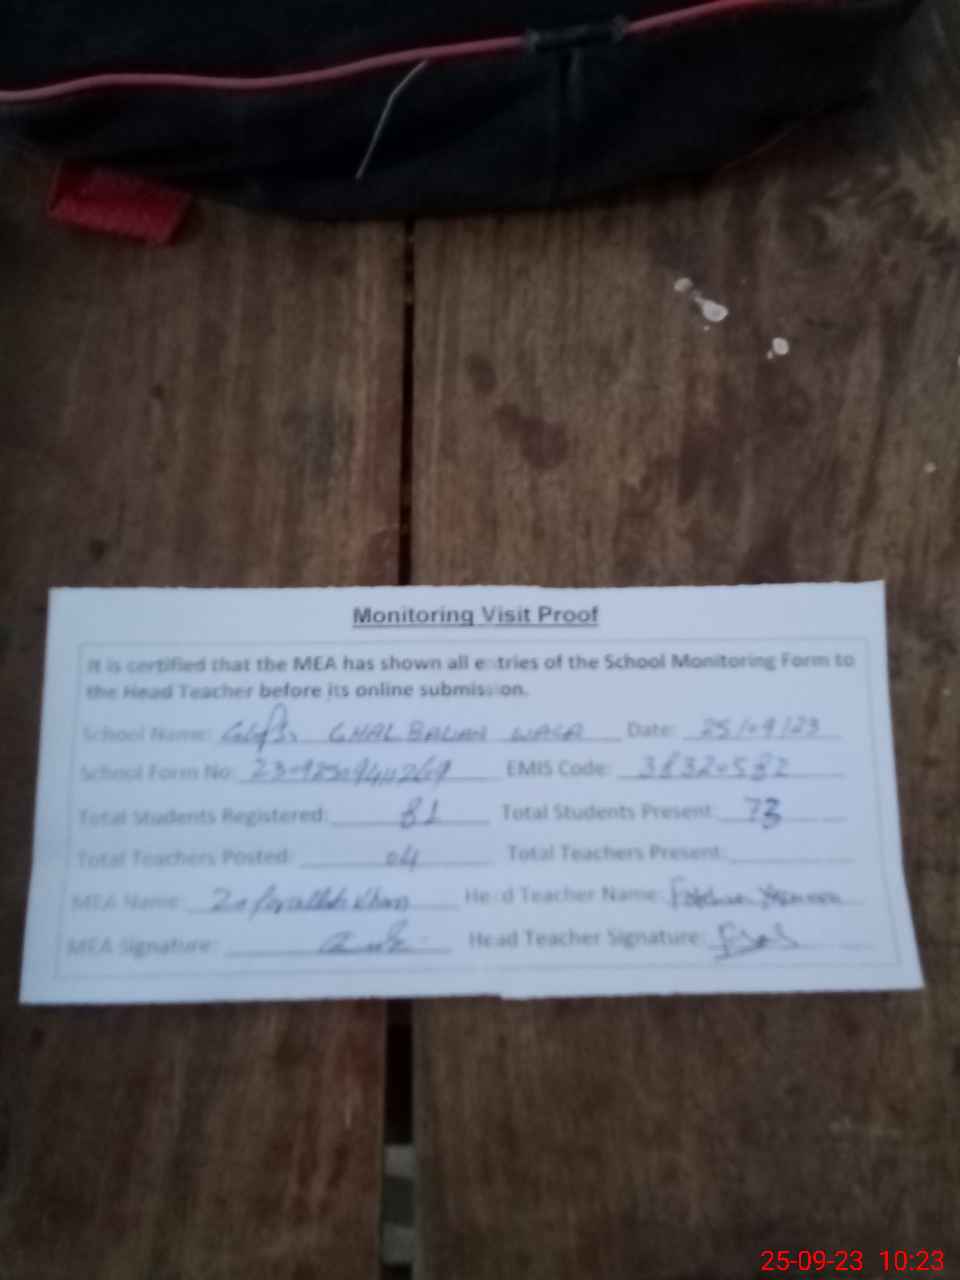 Monitoring Visit Proof
It is certified that the MEA has shown all entries of the School Monitoring Form to
the Head Teacher before its online submission.
School Name: GHAL BALIAN WALA Date: 25/09/23
School Form No: EMIS Code: 38320582
Total Students Registered: 81 Total Students Present: 73
Total Teachers Posted: 04 Total Teachers Present:
MEA Name: Zafarullah Khan Head Teacher Name:
MEA Signature: Head Teacher Signature:
25-09-23 10:23